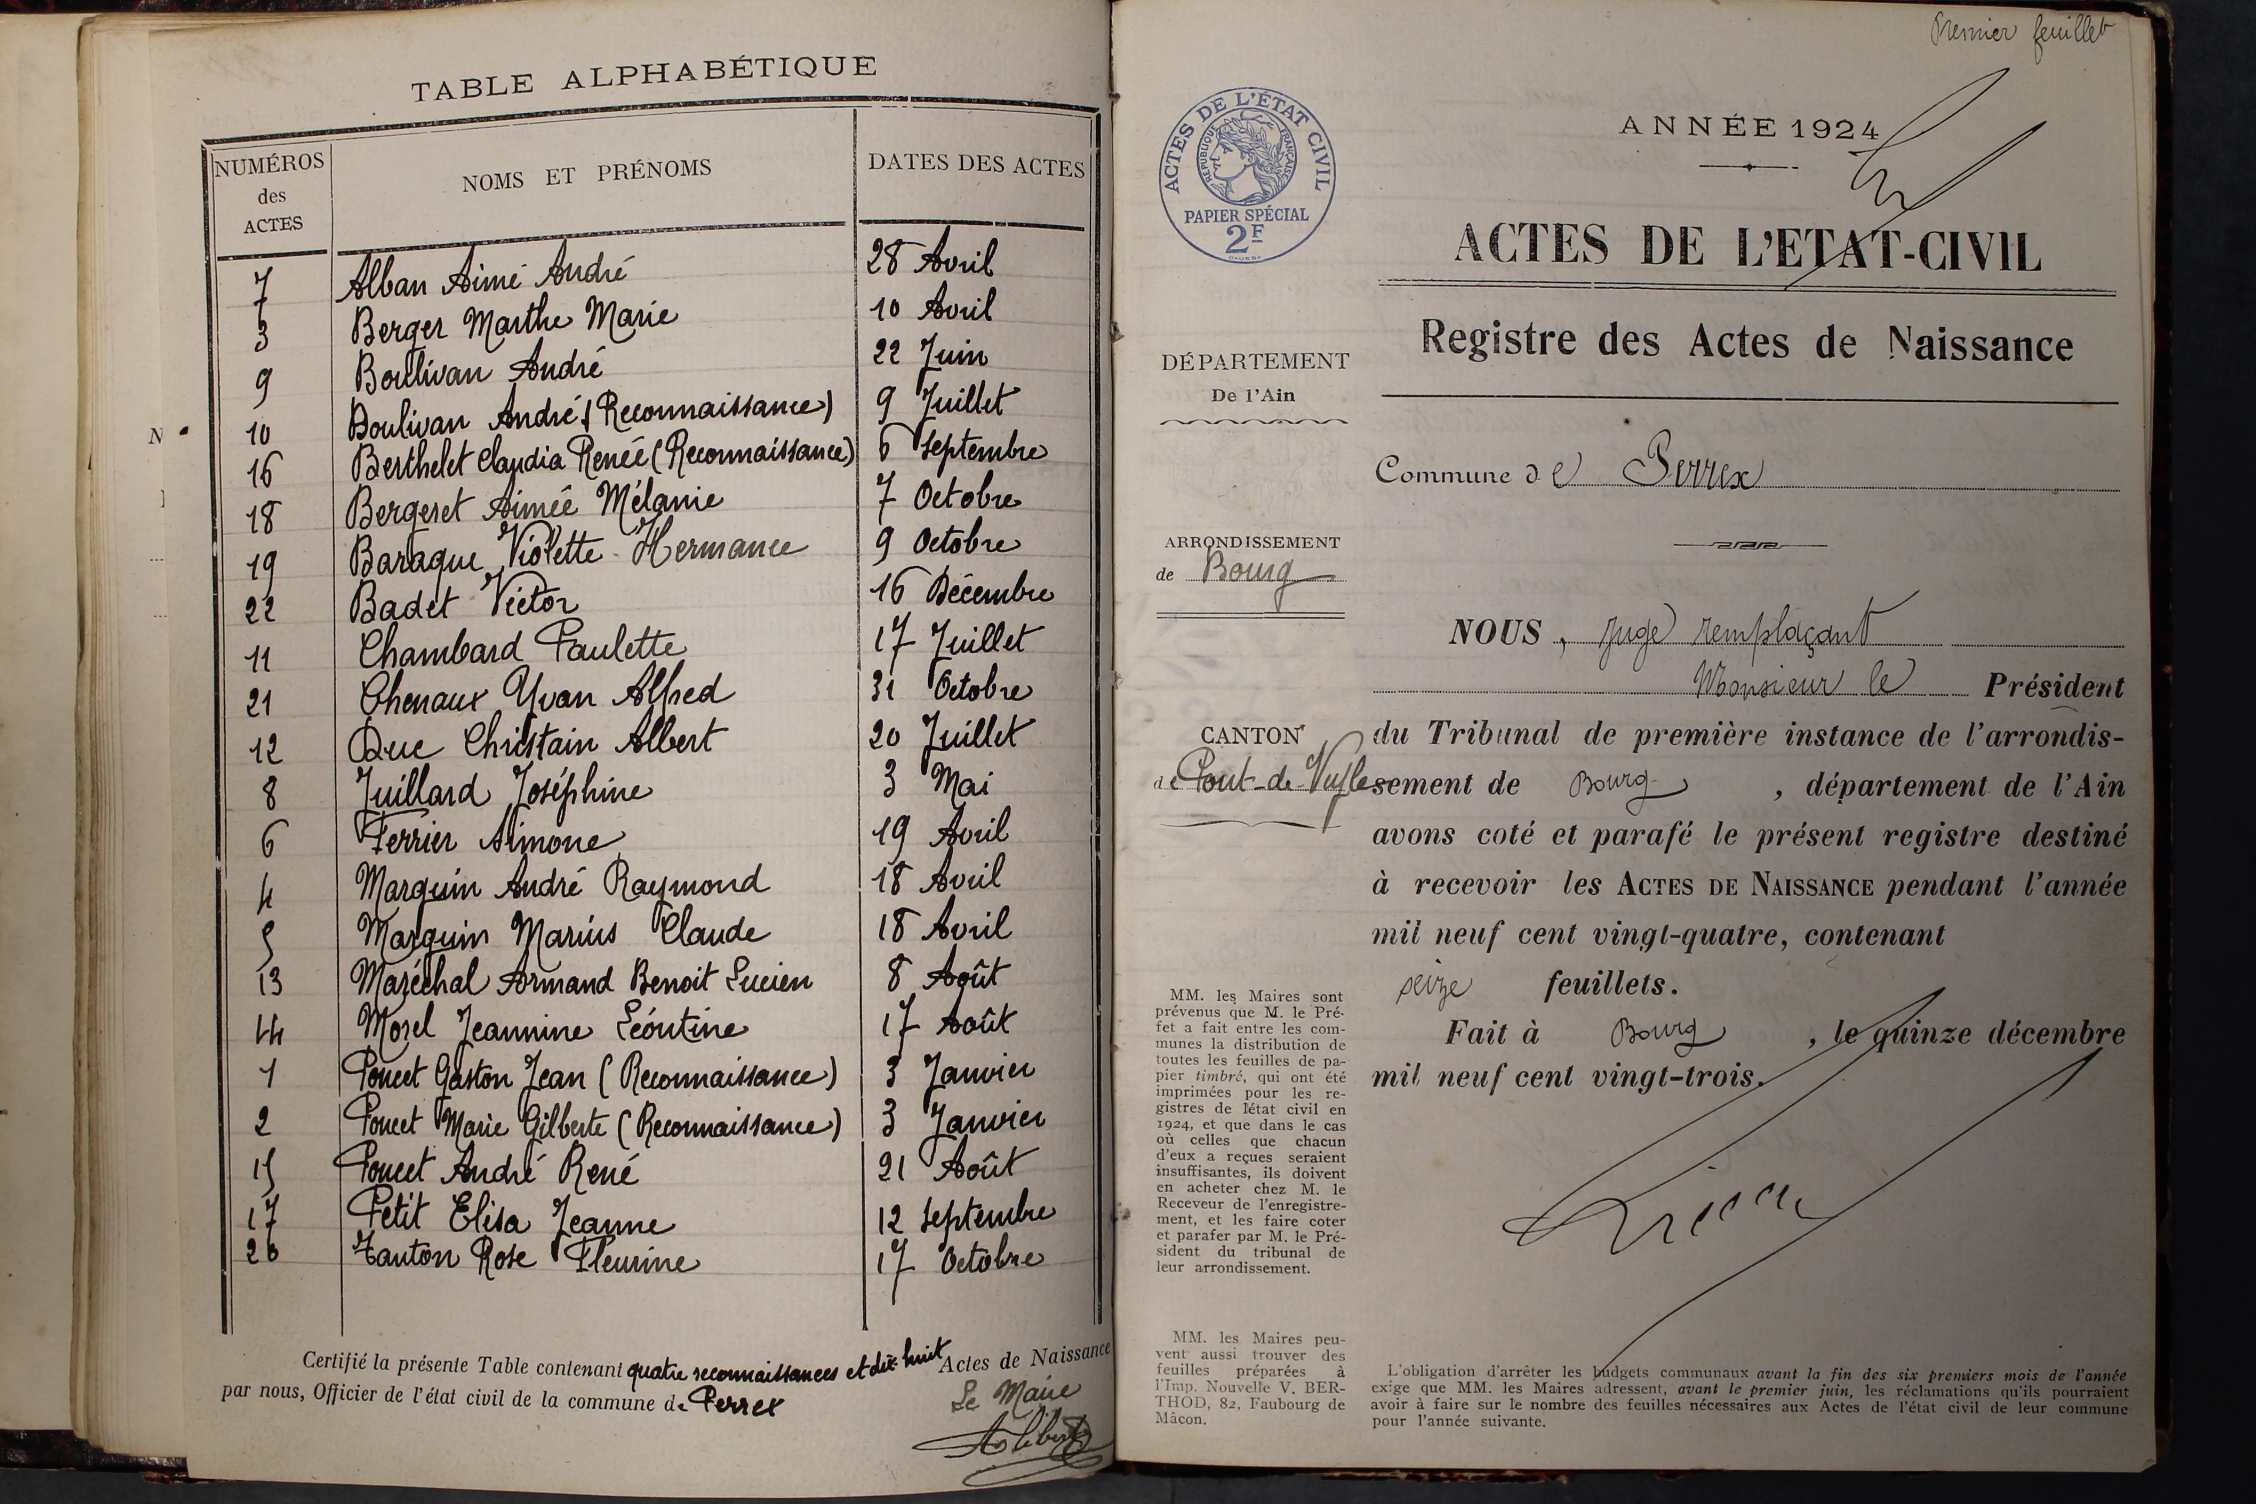 TABLE ALPHABÉTIQUE
NUMÉROS des ACTES
NOMS ET PRÉNOMS
DATES DES ACTES
7 Alban Aimé André 28 Avril
3 Berger Marthe Marie 10 Avril
9 Boulivan André 22 Juin
10 Boulivan André (Reconnaissance) 9 Juillet
16 Berthelet Claudia Renée (Reconnaissance) 6 Septembre
18 Bergeret Aimée Mélanie 7 Octobre
19 Baraque Violette Hermance 9 Octobre
22 Badet Victor 16 Décembre
11 Chambard Paulette 17 Juillet
21 Chenaux Yvan Alfred 31 Octobre
12 Duc Christain Albert 20 Juillet
8 Juillard Joséphine 3 Mai
6 Ferrier Simone 19 Avril
4 Marguin André Raymond 18 Avril
5 Marguin Marius Claude 18 Avril
13 Maréchal Armand Benoit Lucien 8 Août
14 Morel Jeannine Léontine 17 Août
1 Poncet Gaston Jean (Reconnaissance) 3 Janvier
2 Poncet Marie Gilberte (Reconnaissance) 3 Janvier
15 Poncet André René 21 Août
17 Petit Elisa Jeanne 12 Septembre
20 Tanton Rose Fleurine 17 Octobre
Certifié la présente Table contenant quatre reconnaissances et dix-huit Actes de Naissance
par nous, Officier de l'état civil de la commune de Perrex
Le Maire
Premier feuillet
ACTES DE L'ÉTAT CIVIL
RÉPUBLIQUE FRANÇAISE
PAPIER SPÉCIAL
2F
ANNÉE 1924
ACTES DE L'ETAT-CIVIL
Registre des Actes de Naissance
DÉPARTEMENT
De l'Ain
Commune de Perrex
ARRONDISSEMENT
de Bourg
CANTON
de Pont-de-Veyle
NOUS, Juge remplaçant
Monsieur le Président
du Tribunal de première instance de l'arrondis-
sement de Bourg, département de l'Ain
avons coté et parafé le présent registre destiné
à recevoir les ACTES DE NAISSANCE pendant l'année
mil neuf cent vingt-quatre, contenant
seize feuillets.
Fait à Bourg, le quinze décembre
mil neuf cent vingt-trois.
MM. les Maires sont
prévenus que M. le Pré-
fet a fait entre les com-
munes la distribution de
toutes les feuilles de pa-
pier timbré, qui ont été
imprimées pour les re-
gistres de l'état civil en
1924, et que dans le cas
où celles que chacun
d'eux a reçues seraient
insuffisantes, ils doivent
en acheter chez M. le
Receveur de l'enregistre-
ment, et les faire coter
et parafer par M. le Pré-
sident du tribunal de
leur arrondissement.
MM. les Maires peu-
vent aussi trouver des
feuilles préparées à
l'Imp. Nouvelle V. BER-
THOD, 82, Faubourg de
Mâcon.
L'obligation d'arrêter les budgets communaux avant la fin des six premiers mois de l'année
exige que MM. les Maires adressent, avant le premier juin, les réclamations qu'ils pourraient
avoir à faire sur le nombre des feuilles nécessaires aux Actes de l'état civil de leur commune
pour l'année suivante.